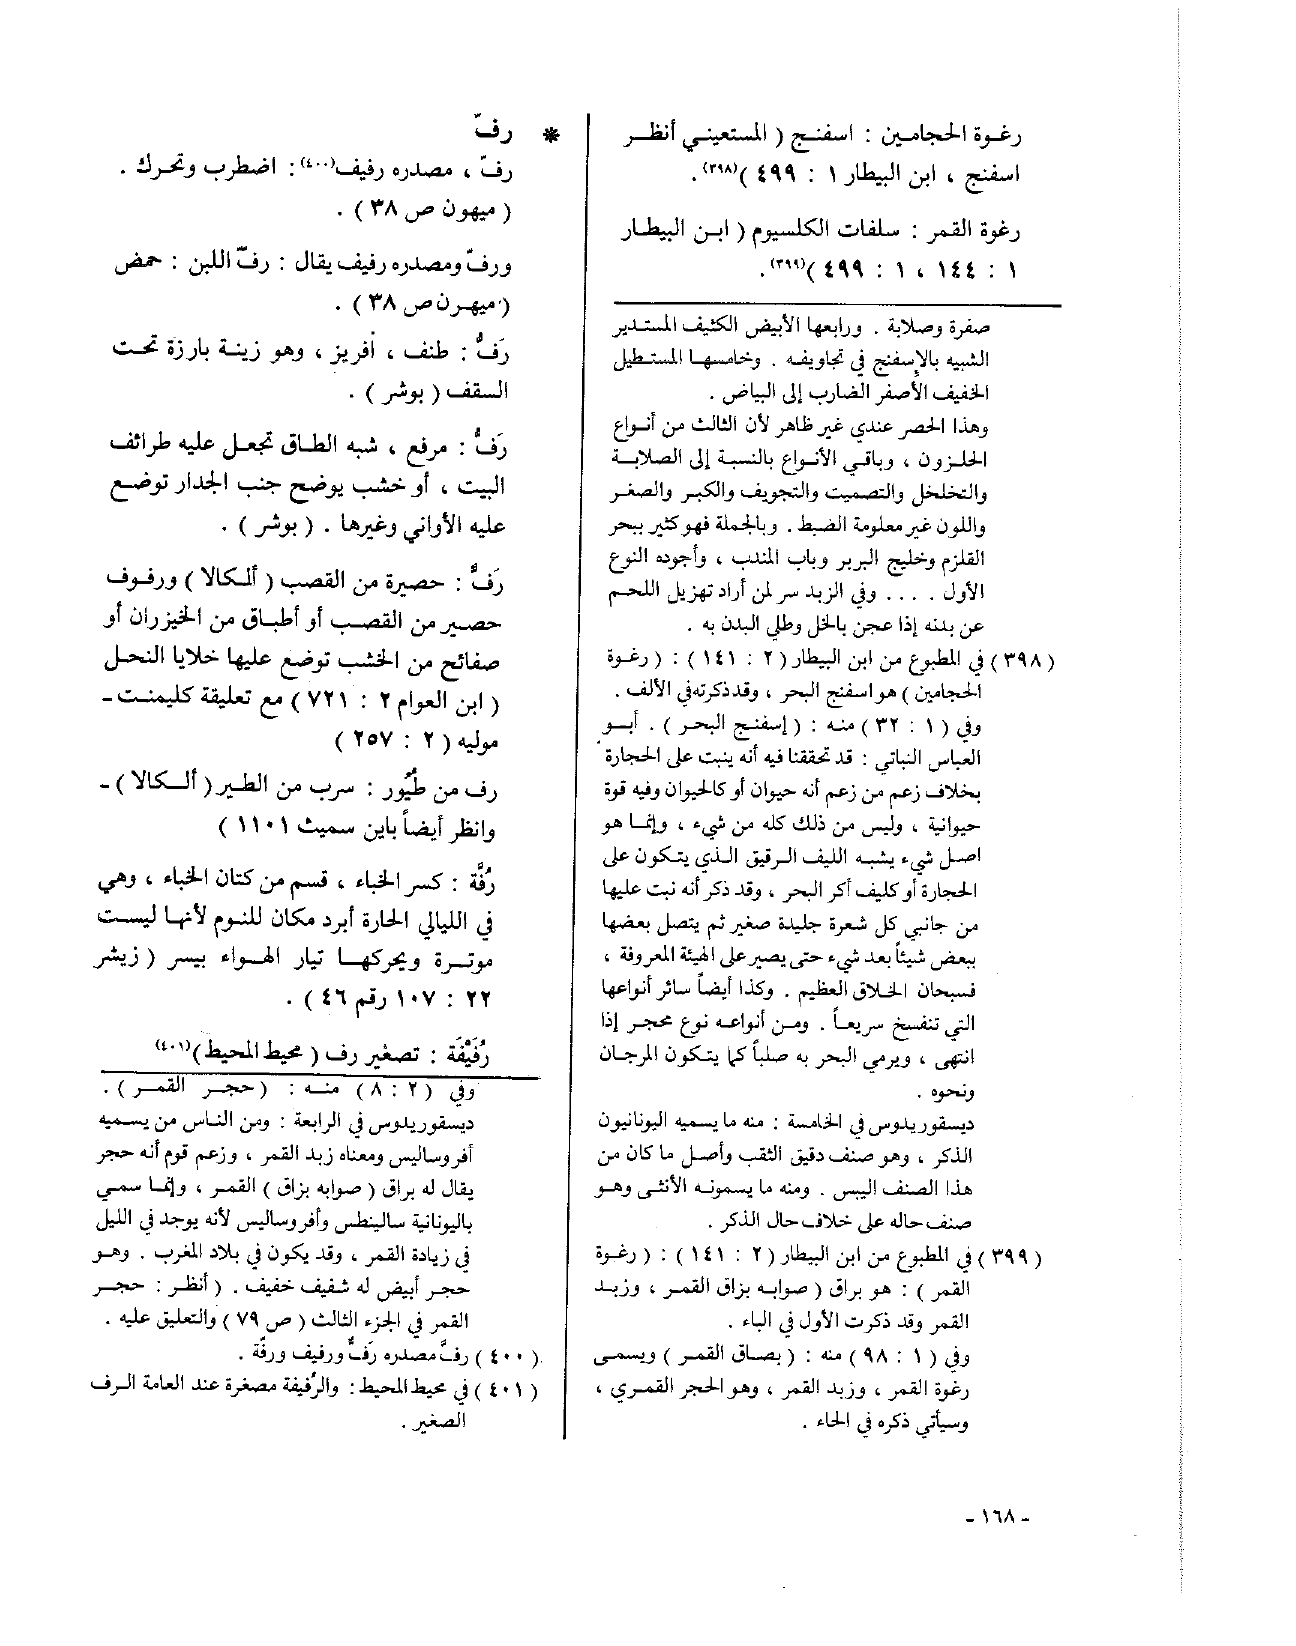 رغوة الحجامين : اسفنج ( المستعيني أنظر
اسفنج ، ابن البيطار ١ : ٤٩٩ )(٣٩٨).
رغوة القمر : سلفات الكلسيوم ( ابن البيطار
١ : ١٤٤ ، ١ : ٤٩٩ )(٣٩٩).
صفرة وصلابة . ورابعها الأبيض الكثيف المستدير
الشبيه بالإسفنج في تجاويفه . وخامسها المستطيل
الخفيف الأصفر الضارب إلى البياض .
وهذا الحصر عندي غير ظاهر لأن الثالث من أنواع
الحلزون ، وباقي الأنواع بالنسبة إلى الصلابة
والتخلخل والتصميت والتجويف والكبر والصغر
واللون غير معلومة الضبط . وبالجملة فهو كثير ببحر
القلزم وخليج البربر وباب المندب ، وأجوده النوع
الأول . . . . وفي الزبد سر لمن أراد تهزيل اللحم
عن بدنه إذا عجن بالخل وطلي البدن به .
( ٣٩٨ ) في المطبوع من ابن البيطار ( ٢ : ١٤١ ) : ( رغوة
الحجامين ) هو اسفنج البحر ، وقد ذكرته في الألف .
وفي ( ١ : ٣٢ ) منه : ( إسفنج البحر ) . أبو
العباس النباتي : قد تحققنا فيه أنه ينبت على الحجارة
بخلاف زعم من زعم أنه حيوان أو كالحيوان وفيه قوة
حيوانية ، وليس من ذلك كله من شيء ، وإنما هو
اصل شيء يشبه الليف الرقيق الذي يتكون على
الحجارة أو كليف أكر البحر ، وقد ذكر أنه نبت عليها
من جانبي كل شعرة جليدة صغير ثم يتصل بعضها
ببعض شيئاً بعد شيء حتى يصير على الهيئة المعروفة ،
فسبحان الخلاق العظيم . وكذا أيضاً سائر أنواعها
التي تنفسخ سريعاً . ومن أنواعه نوع محجر إذا
انتهى ، ويرمي البحر به صلباً كما يتكون المرجان
ونحوه .
ديسقوريدوس في الخامسة : منه ما يسميه اليونانيون
الذكر ، وهو صنف دقيق الثقب وأصل ما كان من
هذا الصنف اليبس . ومنه ما يسمونه الأنثى وهو
صنف حاله على خلاف حال الذكر .
( ٣٩٩ ) في المطبوع من ابن البيطار ( ٢ : ١٤١ ) : ( رغوة
القمر ) : هو براق ( صوابه بزاق القمر ، وزبد
القمر وقد ذكرت الأول في الباء .
وفي ( ١ : ٩٨ ) منه : ( بصاق القمر ) ويسمى
رغوة القمر ، وزبد القمر ، وهو الحجر القمري ،
وسيأتي ذكره في الحاء .
* رفّ
رفّ ، مصدره رفيف(٤٠٠): اضطرب وتحرك .
( ميهون ص ٣٨ ) .
ورفّ ومصدره رفيف يقال : رفّ اللبن : حمض
( ميهرن ص ٣٨ ) .
رَفٌّ : طنف ، أفريز ، وهو زينة بارزة تحت
السقف ( بوشر ) .
رَفٌّ : مرفع ، شبه الطاق تجعل عليه طرائف
البيت ، أو خشب يوضح جنب الجدار توضع
عليه الأواني وغيرها . ( بوشر ) .
رَفٌّ : حصيرة من القصب ( ألكالا ) ورفوف
حصير من القصب أو أطباق من الخيزران أو
صفائح من الخشب توضع عليها خلايا النحل
( ابن العوام ٢ : ٧٢١ ) مع تعليقة كليمنت -
موليه ( ٢ : ٢٥٧ )
رف من طُيُور : سرب من الطير ( ألكالا ) -
وانظر أيضاً باين سميث ١١٠١ )
رُفَّة : كسر الخباء ، قسم من كتان الخباء ، وهي
في الليالي الحارة أبرد مكان للنوم لأنها ليست
موترة ويحركها تيار الهواء بيسر ( زيشر
٢٢ : ١٠٧ رقم ٤٦ ) .
رُفَيْفَة : تصغير رف ( محيط المحيط )(٤٠١)
وفي ( ٢ : ٨ ) منه : ( حجر القمر ) .
ديسقوريدوس في الرابعة : ومن الناس من يسميه
أفروساليس ومعناه زبد القمر ، وزعم قوم أنه حجر
يقال له براق ( صوابه بزاق ) القمر ، وإنما سمي
باليونانية سالينطس وأفروساليس لأنه يوجد في الليل
في زيادة القمر ، وقد يكون في بلاد المغرب . وهو
حجر أبيض له شفيف خفيف . ( أنظر : حجر
القمر في الجزء الثالث ( ص ٧٩ ) والتعليق عليه .
( ٤٠٠ ) رفّ مصدره رَفٌّ ورفيف ورفّة .
( ٤٠١ ) في محيط المحيط : والرُفيفة مصغرة عند العامة الرف
الصغير .
- ١٦٨ -